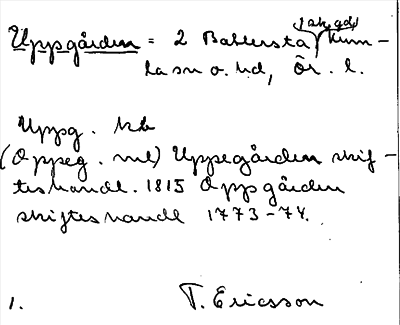 Uppgården = 2 Bablersta (1 ak. gd) Kum-
la sn o. hd, Ör. l.
Uppg. kb
(Oppeg. ml) Uppegården skif-
teshandl. 1815 Oppgården
skifteshandl 1773-74.
1. T. Ericsson